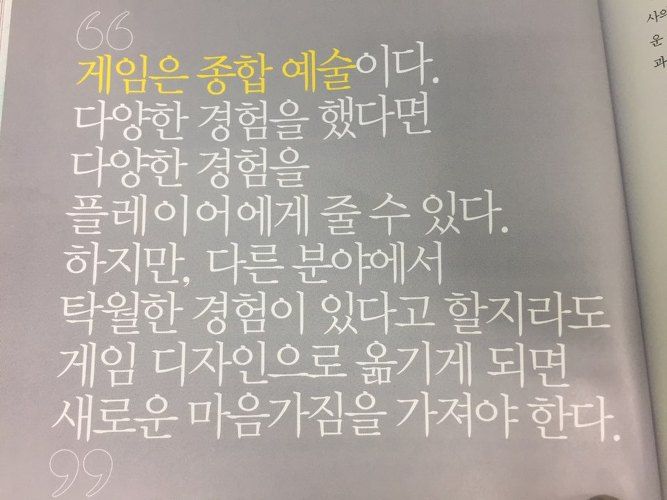 “
게임은 종합 예술이다.
다양한 경험을 했다면
다양한 경험을
플레이어에게 줄 수 있다.
하지만, 다른 분야에서
탁월한 경험이 있다고 할지라도
게임 디자인으로 옮기게 되면
새로운 마음가짐을 가져야 한다.
”
사의
운
과